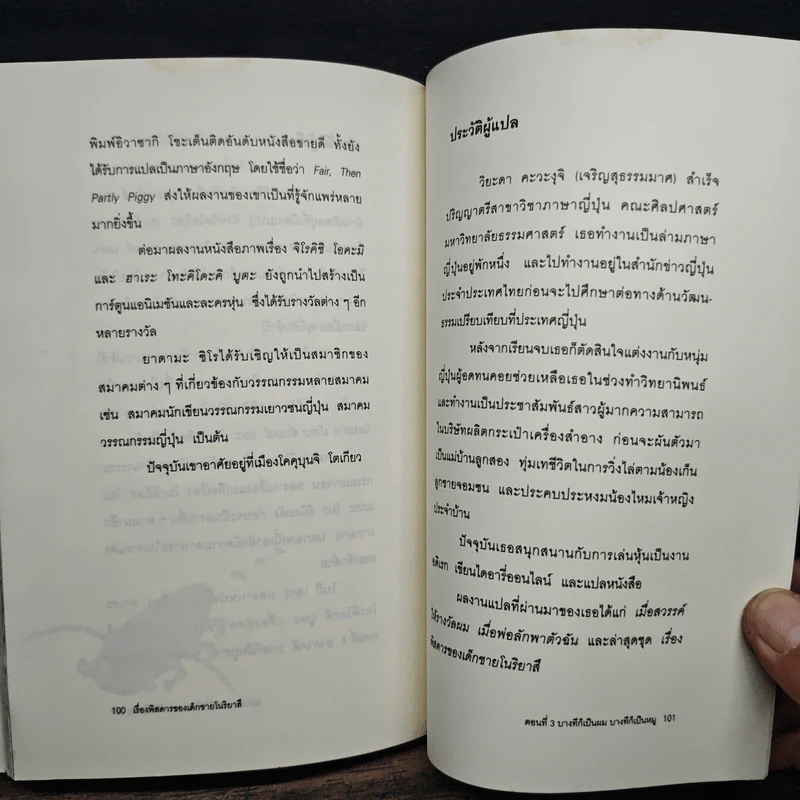 พิมพ์อิวาซากิ โชะเต็นติดอันดับหนังสือขายดี ทั้งยัง
ได้รับการแปลเป็นภาษาอังกฤษ โดยใช้ชื่อว่า Fair, Then
Partly Piggy ส่งให้ผลงานของเขาเป็นที่รู้จักแพร่หลาย
มากยิ่งขึ้น
ต่อมาผลงานหนังสือภาพเรื่อง จิโรคิชิ โอคะมิ
และ ฮาเระ โทะคิโดะคิ บูตะ ยังถูกนำไปสร้างเป็น
การ์ตูนแอนิเมชันและละครหุ่น ซึ่งได้รับรางวัลต่าง ๆ อีก
หลายรางวัล
ยาดามะ ชิโรได้รับเชิญให้เป็นสมาชิกของ
สมาคมต่าง ๆ ที่เกี่ยวข้องกับวรรณกรรมหลายสมาคม
เช่น สมาคมนักเขียนวรรณกรรมเยาวชนญี่ปุ่น สมาคม
วรรณกรรมญี่ปุ่น เป็นต้น
ปัจจุบันเขาอาศัยอยู่ที่เมืองโคคุบุนจิ โตเกียว
100 เรื่องพิสดารของเด็กชายโนริยาสึ
ประวัติผู้แปล
วิยะดา คะวะงุจิ (เจริญสุธรรมมาศ) สำเร็จ
ปริญญาตรีสาขาวิชาภาษาญี่ปุ่น คณะศิลปศาสตร์
มหาวิทยาลัยธรรมศาสตร์ เธอทำงานเป็นล่ามภาษา
ญี่ปุ่นอยู่พักหนึ่ง และไปทำงานอยู่ในสำนักข่าวญี่ปุ่น
ประจำประเทศไทยก่อนจะไปศึกษาต่อทางด้านวัฒน-
ธรรมเปรียบเทียบที่ประเทศญี่ปุ่น
หลังจากเรียนจบเธอก็ตัดสินใจแต่งงานกับหนุ่ม
ญี่ปุ่นผู้อดทนคอยช่วยเหลือเธอในช่วงทำวิทยานิพนธ์
และทำงานเป็นประชาสัมพันธ์สาวผู้มากความสามารถ
ในบริษัทผลิตกระเป๋าเครื่องสำอาง ก่อนจะผันตัวมา
เป็นแม่บ้านลูกสอง ทุ่มเทชีวิตในการวิ่งไล่ตามน้องเก็น
ลูกชายจอมซน และประคบประหงมน้องไหมเจ้าหญิง
ประจำบ้าน
ปัจจุบันเธอสนุกสนานกับการเล่นหุ้นเป็นงาน
อดิเรก เขียนไดอารี่ออนไลน์ และแปลหนังสือ
ผลงานแปลที่ผ่านมาของเธอได้แก่ เมื่อสวรรค์
ให้รางวัลผม เมื่อพ่อลักพาตัวฉัน และล่าสุดชุด เรื่อง
พิสดารของเด็กชายโนริยาสึ
ตอนที่ 3 บางทีก็เป็นผม บางทีก็เป็นหมู 101